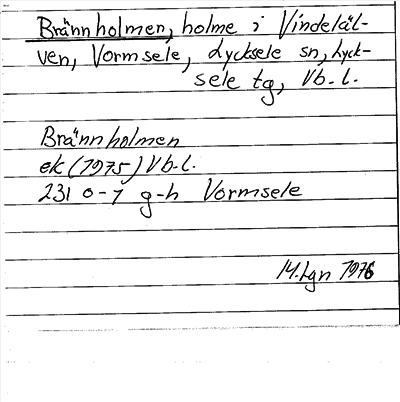 Brännholmen, holme i Vindeläl-
ven, Vormsele, Lycksele sn, Lyck-
sele tg, Vb.l.
Brännholmen
ek (1975) Vb.l.
231 0-1 g-h Vormsele
14. Lgn 1976